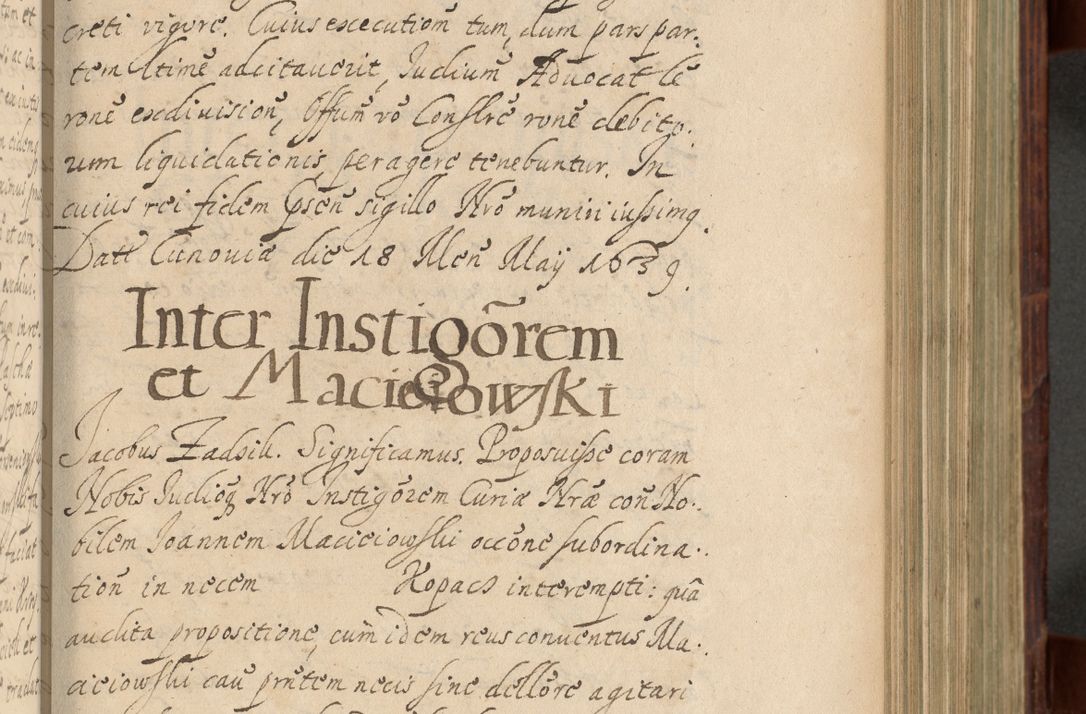 creti vigore. Cuius executioñ tum, dum pars par-
tem ltimẽ adcitaverit, Iudium Advocat lẽ
ronẽ exdivisionẽ, Offum vo Conslrẽ ronẽ debito.
rum liquidationis peragere tenebuntur. In
cuius rei fidem Psen̄ sigillo Nrõ muniri iussimq.
Datt Cunoviæ die 18 Men̄ Maÿ 1639.
Inter Instigõrem
et Macieiowski
Jacobus Zadsik. Significamus. Proposuisse coram
Nobis Iudioq Nrõ Instigõrem Curiæ Nræ con̄ No-
bilem Joannem Macieiowski occõne subordina-
tion̄ in necem Kopacs interempti: quã
audita propositione, cum idem reus conventus Ma-
cieiowski cau prñtem necis sine dellore agitari